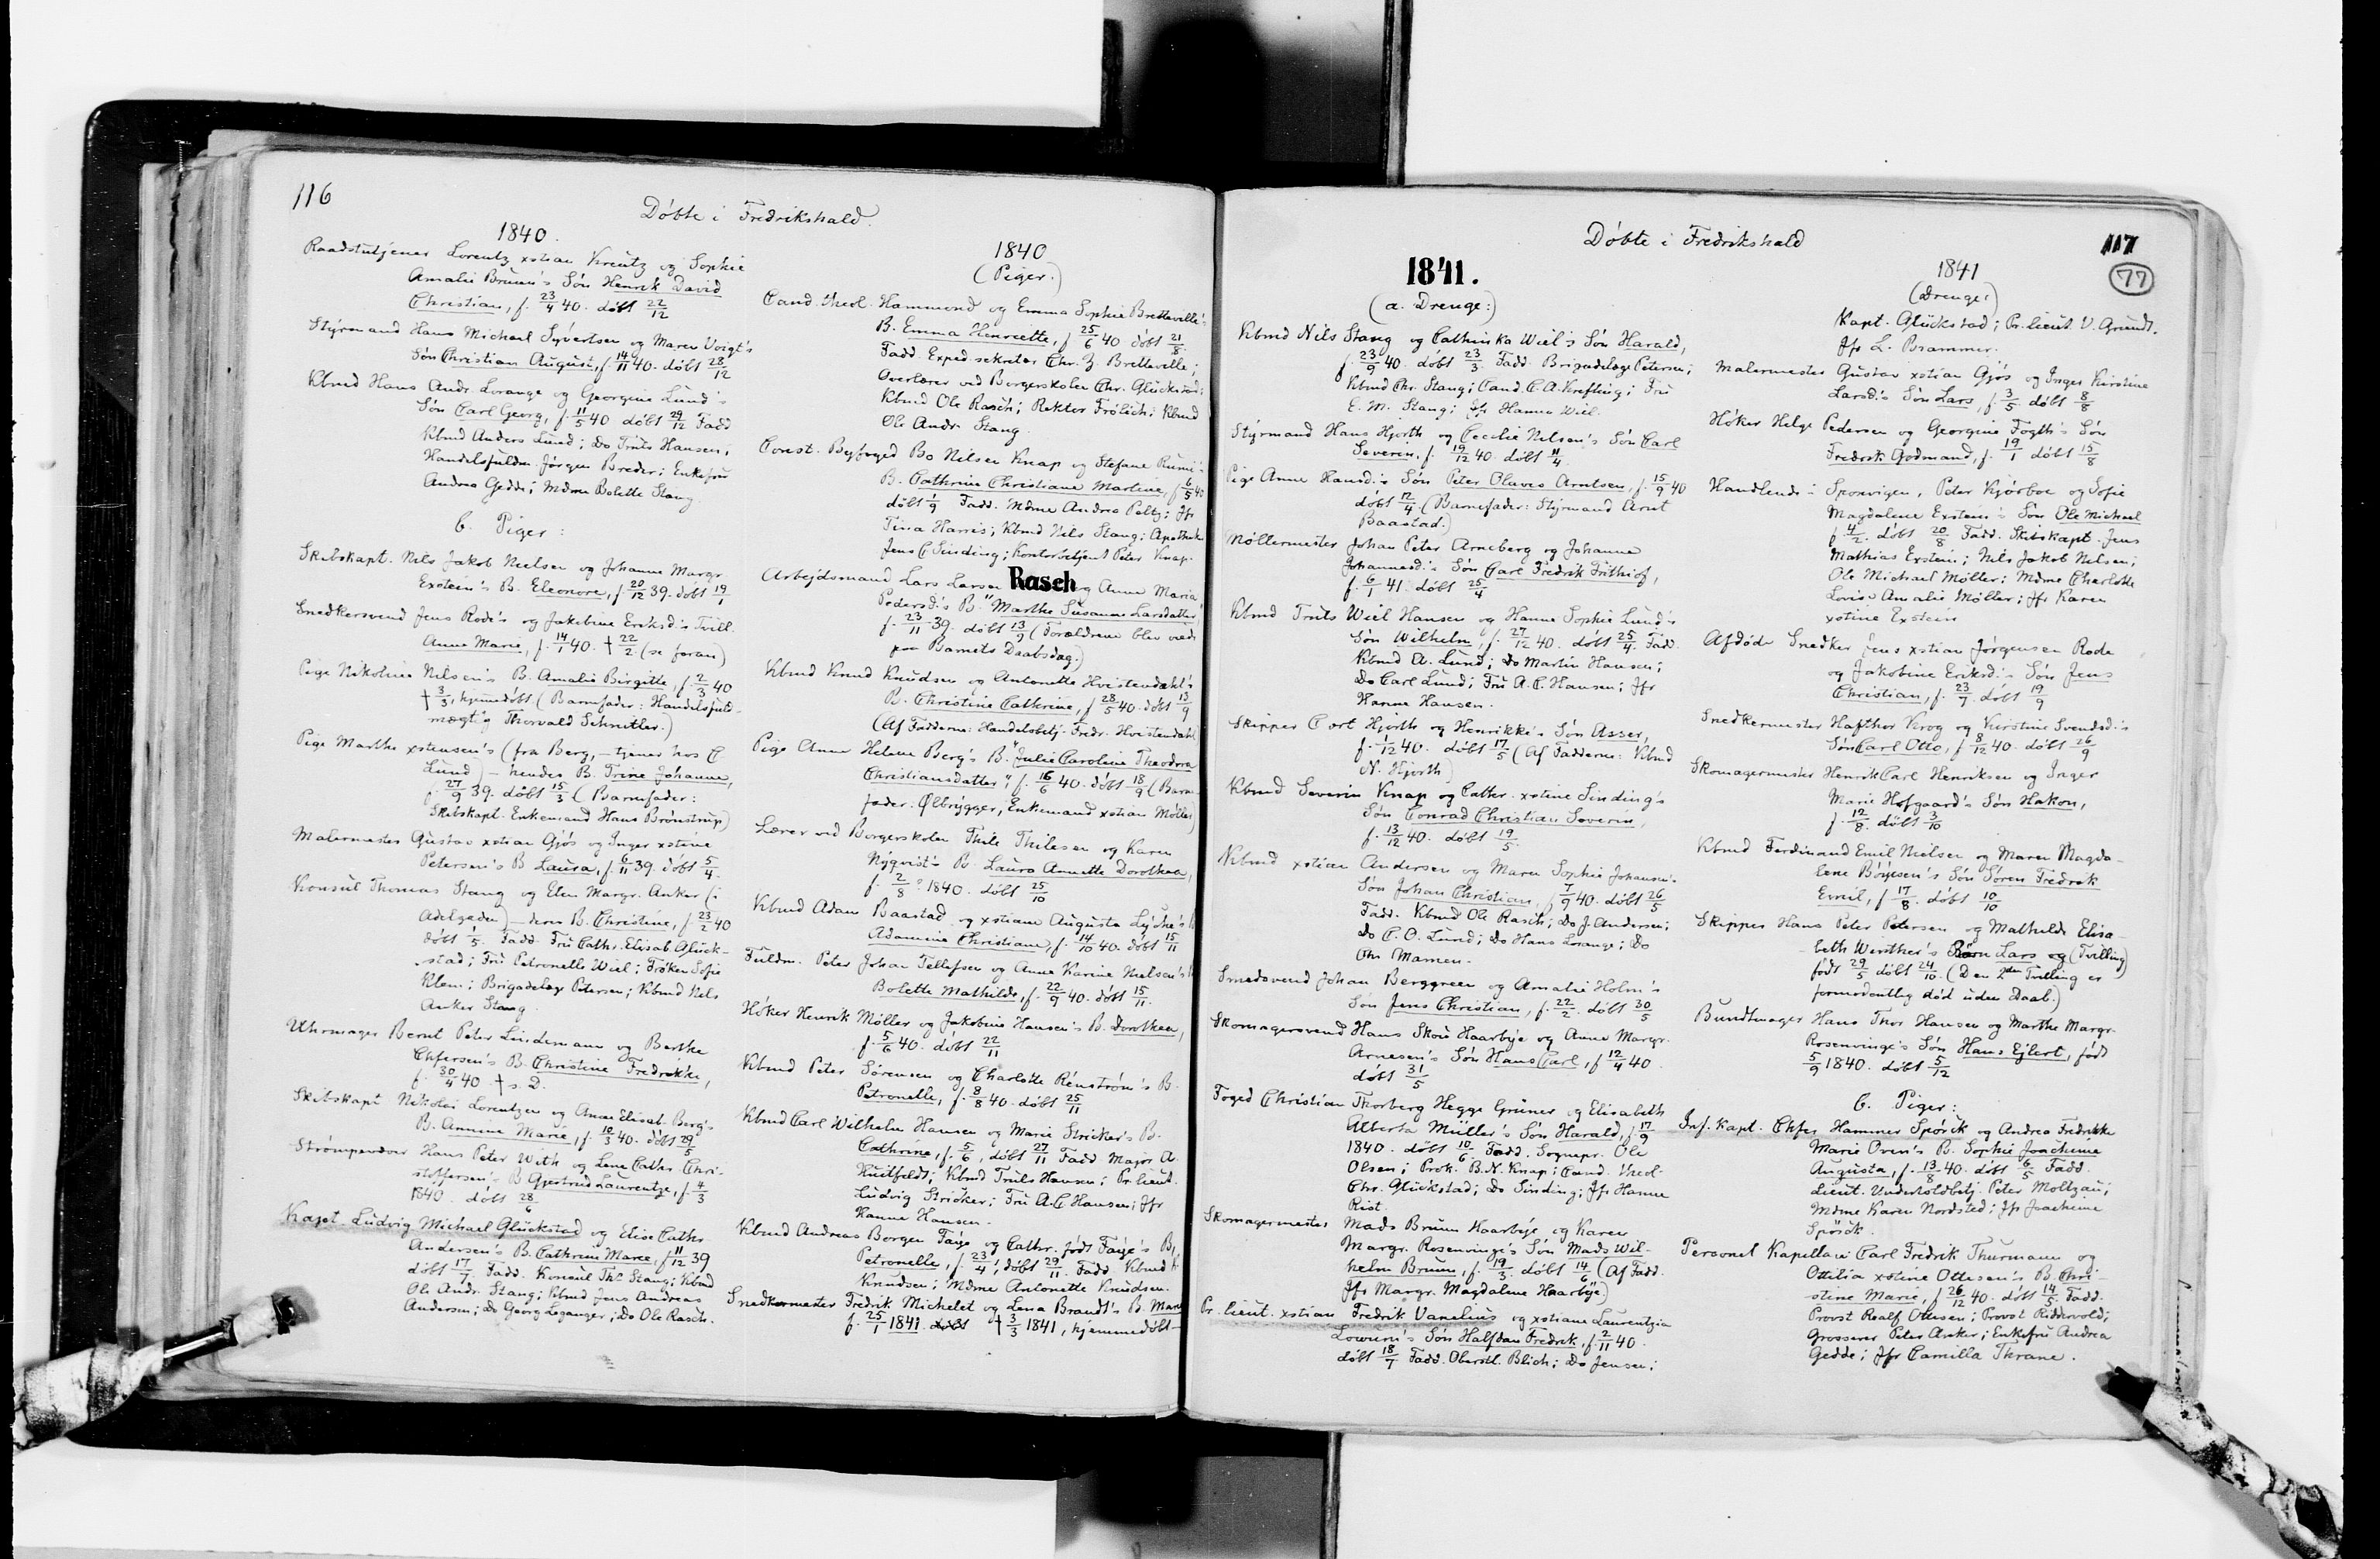 116
Döbte i Fredrikshald.
1840.
Raadstutjener Lorentz xstian Kreutz og Sophie
Amalie Bruun's Sön Henrik David
Christian, f. 23/4 40. döbt 22/12
Styrmand Hans Michael Syvertsen og Maren Voigt's
Sön Christian August, f. 14/11 40. döbt 28/12
Kbmd Hans Andr. Lorange og Georgine Lund's
Sön Carl Georg, f. 11/5 40 döbt 29/12 Fadd
Kbmd Anders Lund; Do Truls Hansen;
Handelsfuldm. Jörgen Breder; Enkefru
Andrea Gedde; Mdme Bolette Stang.
b. Piger:
Skibskapt. Nils Jakob Nielsen og Johanne Margr.
Exstein's B. Eleonore, f. 20/12 39. döbt 19/1
Snedkersvend Jens Rode's og Jakobine Eriksd.'s Tvill.
Anne Marie, f. 14/1 40. † 22/2. (se foran)
Pige Nikoline Nilsen's B. Amalie Birgitte, f. 2/3 40
† 3/3, hjemmedöbt. (Barnefader: Handelsfuld-
mægtig Thorvald Schnitler.)
Pige Marthe xstensen's (fra Berg, - tjener hos C
Lund) - hendes B. Trine Johanne,
f. 27/9 39. döbt 15/3 (Barnefader:
Skibskapt. Enkemand Hans Brönstrup)
Malermester Gustav xstian Gjös og Inger xstine
Petersen's B Laura, f. 6/11 39. döbt 5/4.
Konsul Thomas Stang og Elen Margr. Anker (i
Adelgaden) - deres B. Christine, f. 23/2 40
döbt 1/5. Fadd. Fru Cath. Elisab. Glück-
stad; Fru Petronelle Wiel; Fröken Sofie
Klem; Brigadelæge Petersen; Kbmd Nils
Anker Stang.
Uhrmager Bernt Peter Lindemann og Berthe
Chfersen's B. Christine Fredrikke,
f. 30/4 40 † s. D.
Skibskapt Nikolai Lorentzen og Anne Elisab. Berg's
B. Annine Marie, f. 10/3 40. döbt 29/5
Strömpevæver Hans Peter With og Lene Cathr. Chri-
stoffersen's B Gjertrud Laurentze, f. 4/3
1840. döbt 28/6
Kapt. Ludvig Michael Glückstad og Elise Cathr.
Andersen's B. Cathrine Marie, f. 11/12 39
döbt 17/7. Fadd. Konsul Ths Stang; Kbmd
Ole Andr. Stang; Kbmd Jens Andreas
Andersen; Do Georg Leganger; Do Ole Rasch.
1840
(Piger.)
Cand. theol. Hammond og Emma Sophie Bretteville's
B. Emma Henriette, f. 25/6 40 döbt 21/8.
Fadd. Exped.sekretær Chr. Z. Bretteville;
Overlærer ved Borgerskolen Chr. Glückstad;
Kbmd Ole Rasch; Rektor Frölich; Kbmd
Ole Andr. Stang.
Const. Byfoged Bo Nilsen Knap og Stefane
B. Cathrine Christiane Martine, f. 6/5 40
döbt 1/9 Fadd. Mdme Andrea Peltz; Jfr
Tina Harris; Kbmd Nils Stang; Apotheker
Jens C Sinding; Kontorbetjent Peter Knap.
Arbejdsmand Lars Larsen Rasch og Anne Maria
Pedersd.'s B. "Marthe Susanne Larsdatter"
f. 23/11 39. döbt 13/9 (Forældrene blev viede
paa Barnets Daabsdag.)
Kbmd Knud Knudsen og Antonette Hvistendahl's
B. Christine Cathrine, f. 28/5 40. döbt 13/9
(Af Fadderne: Handelsbetj. Fredr. Hvistendahl
Pige Anne Helene Berg's B. "Julie Caroline Theodora
Christiansdatter", f. 16/6 40. döbt 18/9 (Barne-
fader: Ølbrygger, Enkemand xstian Möller)
Lærer ved Borgerskolen Thile Thilesen og Karen
Nyqvist's B. Laura Annette Dorothea,
f. 2/8 ? 1840. döbt 25/10
Kbmd Adam Baastad og xstiane Augusta Lyche's
Adamine Christiane, f. 14/10 40. döbt 15/11
Fuldm. Peter Johan Tellefsen og Anne Karine Nielsen's
Bolette Mathilde, f. 22/9 40. döbt 15/11.
Höker Henrik Möller og Jakobine Hansen's B. Dorothea,
f. 5/6 40. döbt 22/11
Kbmd Peter Sörensen og Charlotte Renström's B.
Petronelle, f. 8/8 40. döbt 25/11
Kbmd Carl Wilhelm Hansen og Marie Stricker's B.
Cathrine, f. 5/6, döbt 27/11 Fadd Major A.
Huitfeldt; Kbmd Truls Hansen; Pr. lieut.
Ludvig Stricker; Fru A. C Hansen; Jfr
Hanne Hansen.
Kbmd Andreas Borgen Faye og Cathr. födt Faye's B.
Petronelle, f. 23/4, döbt 29/11. Fadd. Kbmd K.
Knudsen; Mdme Antonette Knudsen.
Snedkermester Fredrik Michelet og Lena Brandt's B. Marie
f. 25/1 1841. döbt † 3/3 1841, hjemmedöbt
Döbte i Fredrikshald
117
77
1841.
(a. Drenge:)
Kbmd Nils Stang og Cathinka Wiel's Sön Harald,
f. 23/9 40. döbt 23/3 Fadd. Brigadelæge Petersen;
Kbmd Chr. Stang; Cand. C. A. Krefting; Fru
E. M. Stang; Jfr Hanna Wiel.
Styrmand Hans Hjorth og Cecilie Nilsen's Sön Carl
Severin, f. 19/12 40. döbt 11/4.
Pige Anne Hansd.'s Sön Peter Olaves Arntsen, f. 15/9 40
döbt 12/4 (Barnefader: Styrmand Arnt
Baastad.)
Möllermester Johan Peter Arneberg og Johanne
Johannesd.'s Sön Carl Fredrik Frithiof,
f. 6/1 41. döbt 25/4
Kbmd Truls Wiel Hansen og Hanne Sophie Lund's
Sön Wilhelm, f. 27/12 40. döbt 25/4. Fadd.
Kbmd A. Lund; Do Martin Hansen;
Do Carl Lund; Fru A. C. Hansen; Jfr
Hanne Hansen.
Skipper Cort Hjorth og Henrikke's Sön Asser,
f. 1/12 40. döbt 17/5 (Af Fadderne: Kbmd
N. Hjorth)
Kbmd Severin Knap og Cathr. xstine Sinding's
Sön Conrad Christian Severin,
f. 13/12 40. döbt 19/5.
Kbmd xstian Andersen og Maren Sophie Johansen's
Sön Johan Christian, f. 7/9 40. döbt 26/5
Fadd. Kbmd Ole Rasch; Do J. Andersen;
Do C. O. Lund; Do Hans Lorange; Do
Chr. Mamen.
Smedsvend Johan Berggreen og Amalie Holm's
Sön Jens Christian, f. 22/2. döbt 30/5
Skomagersvend Hans Skou Haarbye og Anne Margr.
Arnesen's Sön Hans Carl, f. 12/4 40.
döbt 31/5
Foged Christian Thorberg Hegge Grüner og Elisabeth
Alberta Müller's Sön Harald, f. 17/9
1840. döbt 10/6. Fadd. Sognepr. Ole
Olsen; Prok. B. N. Knap; Cand. theol.
Chr. Glückstad; Do Sinding; Jfr Hanne
Rist.
Skomagermester Mads Bruun Haarbye og Karen
Margr. Rosenvinge's Sön Mads Wil-
helm Bruun, f. 19/3. döbt 14/6 (Af Fadd.
Jfr Margr. Magdalene Haarbye)
Pr. lieut. xstian Fredrik Vanelius og xstiane Laurentzia
Lowum's Sön Halfdan Fredrik, f. 2/11 40.
döbt 18/7 Fadd. Oberstl. Blich; Do Jensen;
1841
(Drenge:)
Kapt. Glückstad; Pr. lieut. V. Grundt.
Jfr L. Brammer.
Malermester Gustav xstian Gjös og Inger Kirstine
Larsd.'s Sön Lars, f. 3/5. döbt 8/8
Höker Helge Pedersen og Georgine Fogth's Sön
Fredrik Godmand, f. 19/1 döbt 15/8
Handlende i Sponvigen, Peter Kjörboe og Sofie
Magdalene Exstein's Sön Ole Michael
f. 4/2. döbt 20/8 Fadd. Skibskapt. Jens
Mathias Exstein; Nils Jakob Nielsen;
Ole Michael Möller; Mdme Charlotte
Lovise Amalie Möller; Jfr Karen
xstine Exstein
Afdöde Snedker Jens xstian Jörgensen Rode
og Jakobine Eriksd.'s Sön Jens
Christian, f. 23/7. döbt 19/9
Snedkermester Hafthor Krog og Kirstine Svendsd.'s
Sön Carl Otto, f. 8/12 40. döbt 26/9
Skomagermester Henrik Carl Henriksen og Inger
Marie Hofgaard's Sön Hakon,
f. 12/8. döbt 3/10
Kbmd Ferdinand Emil Nielsen og Maren Magda-
lene Böyesen's Sön Sören Fredrik
Emil, f. 17/8. döbt 10/10
Skipper Hans Peter Petersen og Mathilde Elisa-
beth Winther's Börn Lars og (Tvilling)
födt 29/5 döbt 24/10. (Den 2den Tvilling er
formodentlig död uden Daab.)
Bundtmager Hans Thor Hansen og Marthe Margr.
Rosenvinge's Sön Hans Ejlert, födt
5/9 1840. döbt 5/12
b. Piger:
Inf. Kapt. Chfer Hammer Spörck og Andrea Fredrikke
Marie Oven's B. Sophie Joachime
Augusta, f. 13/8 40. döbt 6/5 Fadd.
Lieut. Underholdbetj. Peter Moltzau;
Mdme Karen Nordsted; Jfr Joachime
Spörck.
Personel Kapellan Carl Fredrik Thurmann og
Ottilia xstine Ottesen's B. Chri-
stine Marie, f. 26/12 40. döbt 14/5 Fadd.
Provst Roalf Ottesen; Provst Riddervold;
Grosserer Peter Anker; Enkefru Andrea
Gedde; Jfr Camilla Thrane.